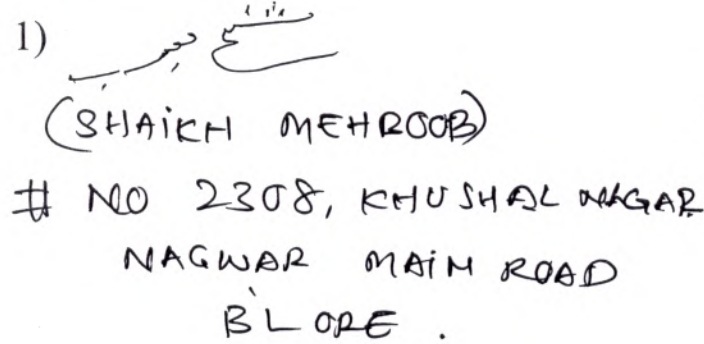 1)
(SHAIKH MEHROOB)
# NO 2308, KHUSHAL NAGAR
NAGWAR MAIN ROAD
B'LORE.